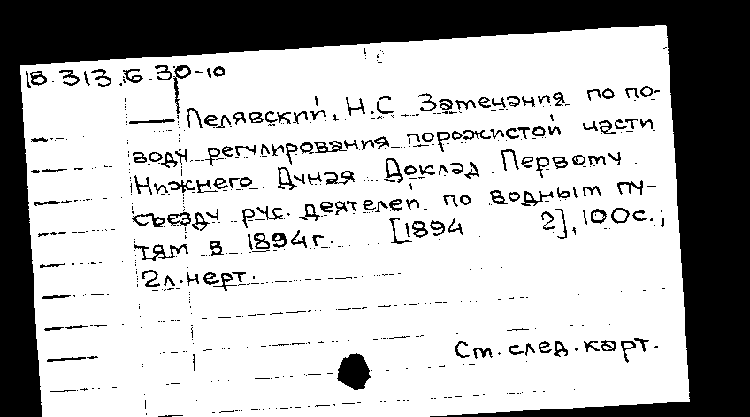 18.313.6.30-10
Лелявский, Н.С Замечания по по-
воду регулирования порожистой части
Нижнего Дуная Доклад Первому
съезду рус. деятелей по водным пу-
тям в 1894г. [1894 ?], 100с.;
2л.черт.
Ст. след. карт.